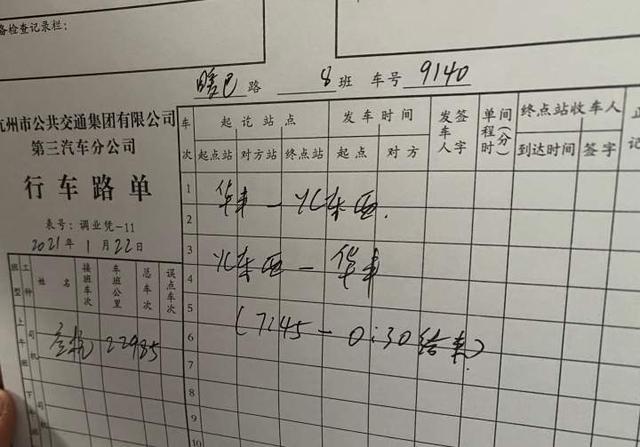 备检查记录栏:
路 8班 车号 9140
杭州市公共交通集团有限公司
第三汽车分公司
行车路单
表号:调业凭-11
2021年1月22日
车次 起讫站点 发车时间 发车人 签字 单程时 间(分) 终点站收车人
起点站 对方站 终点站 起点 对方 到达时间 签字
1
2
3
4
5
6
7
8
9
10
华丰 — 北车西
北车西 — 华丰
(7:45 — 0:30结束)
班型 工种 姓名 接班车次 车班公里 总车次 误点车次
上午班 司机 22985
下